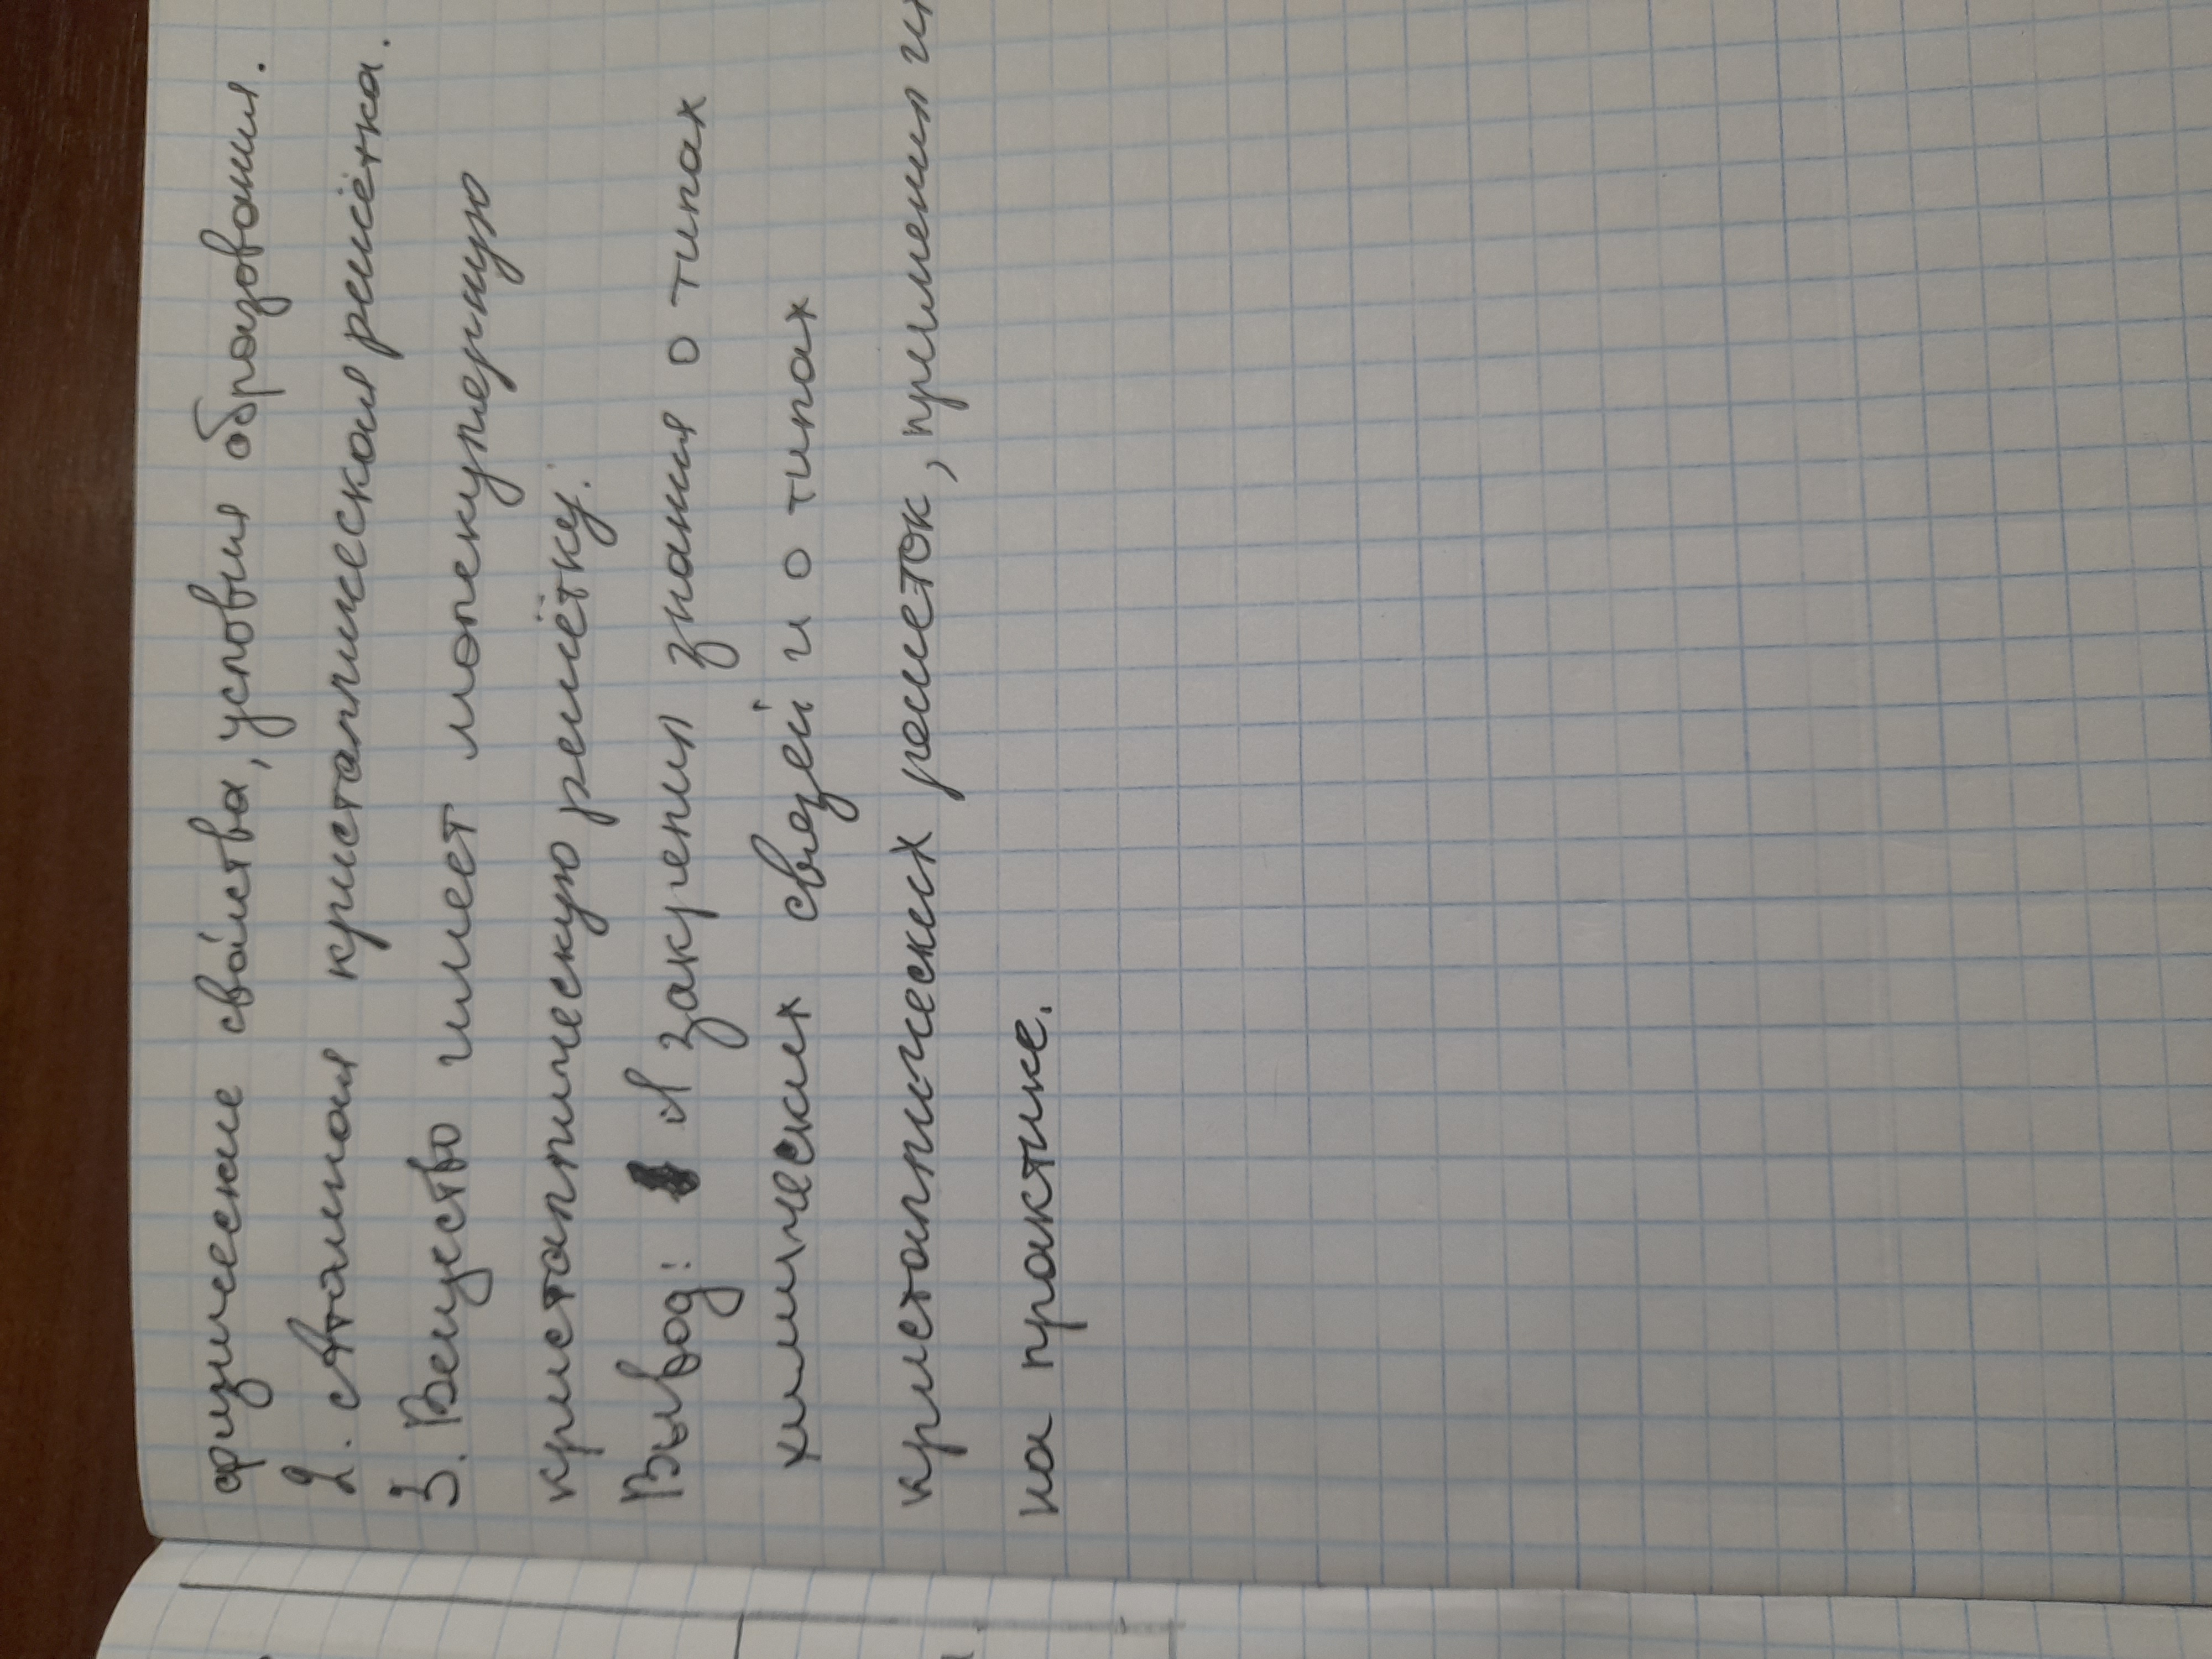 физические свойства, условия образования.
2. Атомная кристаллическая решётка.
3. Вещество имеет молекулярную
кристаллическую решётку.
Вывод: Я закрепил знания о типах
химических связей и о типах
кристаллических решеток, применил их
на практике.